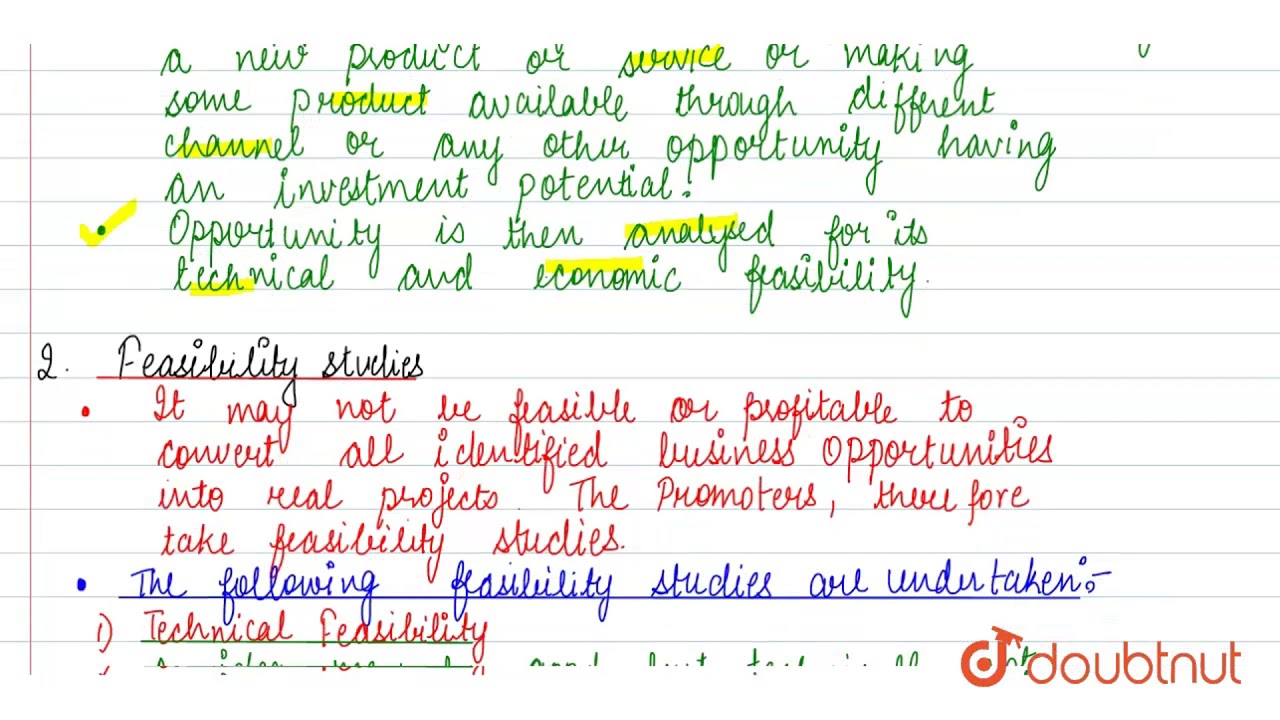 a new product or service or making
some product available through different
channel or any other opportunity having
an investment potential.
• Opportunity is then analysed for its
technical and economic feasibility.
2. Feasibility studies
• It may not be feasible or profitable to
convert all identified business opportunities
into real projects. The Promoters, therefore
take feasibility studies.
• The following feasibility studies are undertaken:-
i) Technical Feasibility
doubtnut